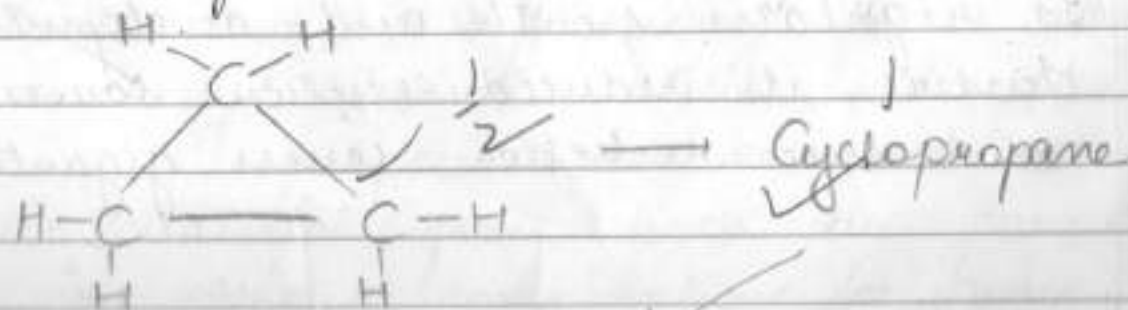 H H
C 1/2 1
→ Cyclopropane
H-C — C-H
H H